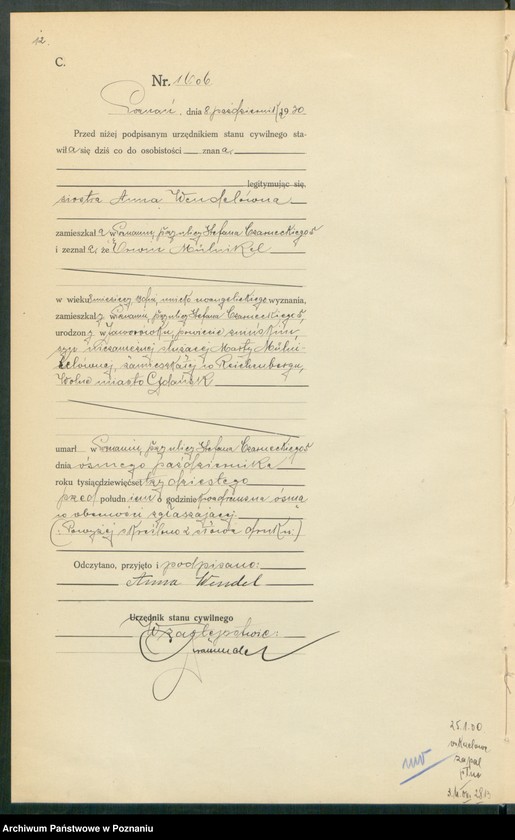 12.
C.
Nr. 1606
Poznań, dnia 8 października 1930.
Przed niżej podpisanym urzędnikiem stanu cywilnego sta-
wiła się dziś co do osobistości znana,
legitymując się,
siostra Anna Wendelówna
zamieszkała w Poznaniu przy ulicy Stefana Czarneckiego 5
i zeznała, że Erwin Mülnikel
w wieku miesięcy wyznania,
zamieszkały w Poznaniu, przy ulicy Stefana Czarneckiego 5,
urodzony w powiecie
syn niezamężnej służącej Marty Mülni-
kelównej, zamieszkałej w Reichenbergu,
Wolne miasto Gdańsk
umarł w Poznaniu, przy ulicy Stefana Czarneckiego 5
dnia ósmego października
roku tysiącdziewięćset trzydziestego
przed południem o godzinie ósmej
w obecności zgłaszającej.
(Powyżej skreślono 2 słowa druku.)
Odczytano, przyjęto i podpisano:
Anna Wendel
Urzędnik stanu cywilnego
W zastępstwie:
25.1.00
zapal
płuc
Archiwum Państwowe w Poznaniu